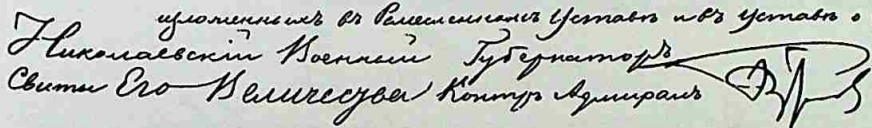 изложенныхъ въ Ремесленномъ Уставѣ и въ уставѣ о
Николаевскій Военный Губернаторъ
Свиты Его Величества Контръ Адмиралъ